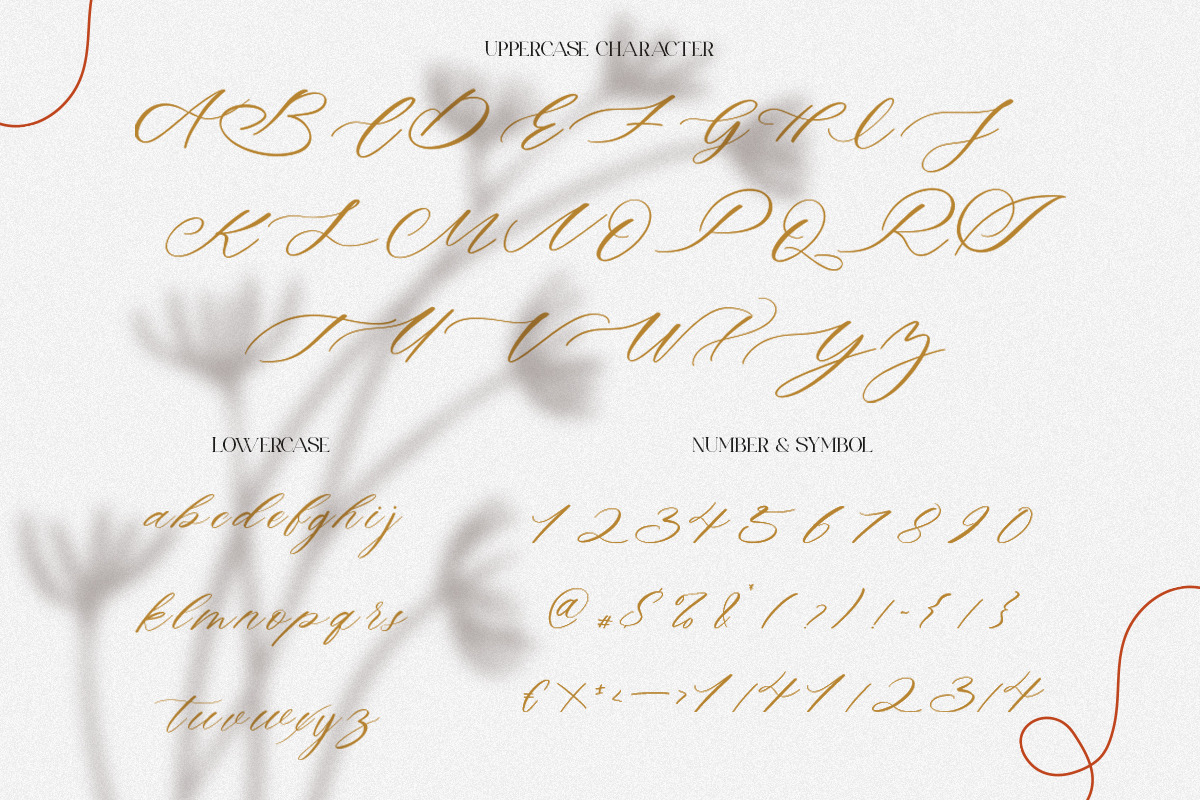 UPPERCASE CHARACTER
A B C D E F G H I J
K L M N O P Q R S
T U V W X Y Z
LOWERCASE
a b c d e f g h i j
k l m n o p q r s
t u v w x y z
NUMBER & SYMBOL
1 2 3 4 5 6 7 8 9 0
@ # $ % & * ( ? ) ! - { / }
€ × ± < — > 1/4 1/2 3/4